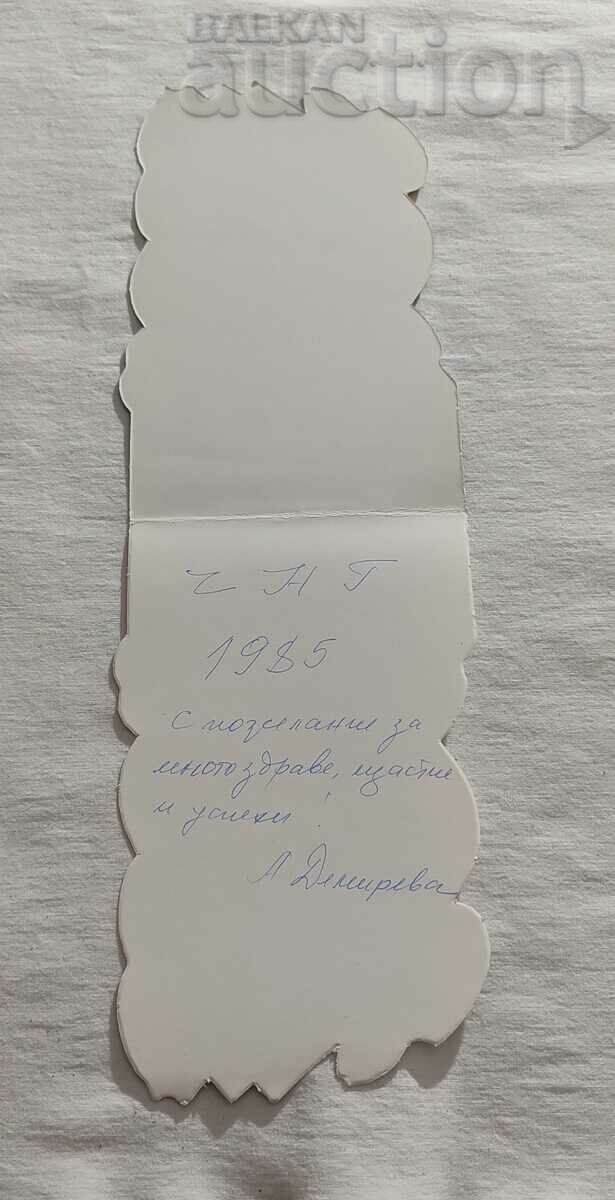 BALKAN
auction
ЧНГ
1985
С пожелание за
много здраве, щастие
и успехи!
Л Демирева